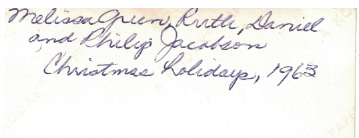 Melissa Green, Ruth, Daniel
and Philip Jacobson
Christmas Holidays, 1963